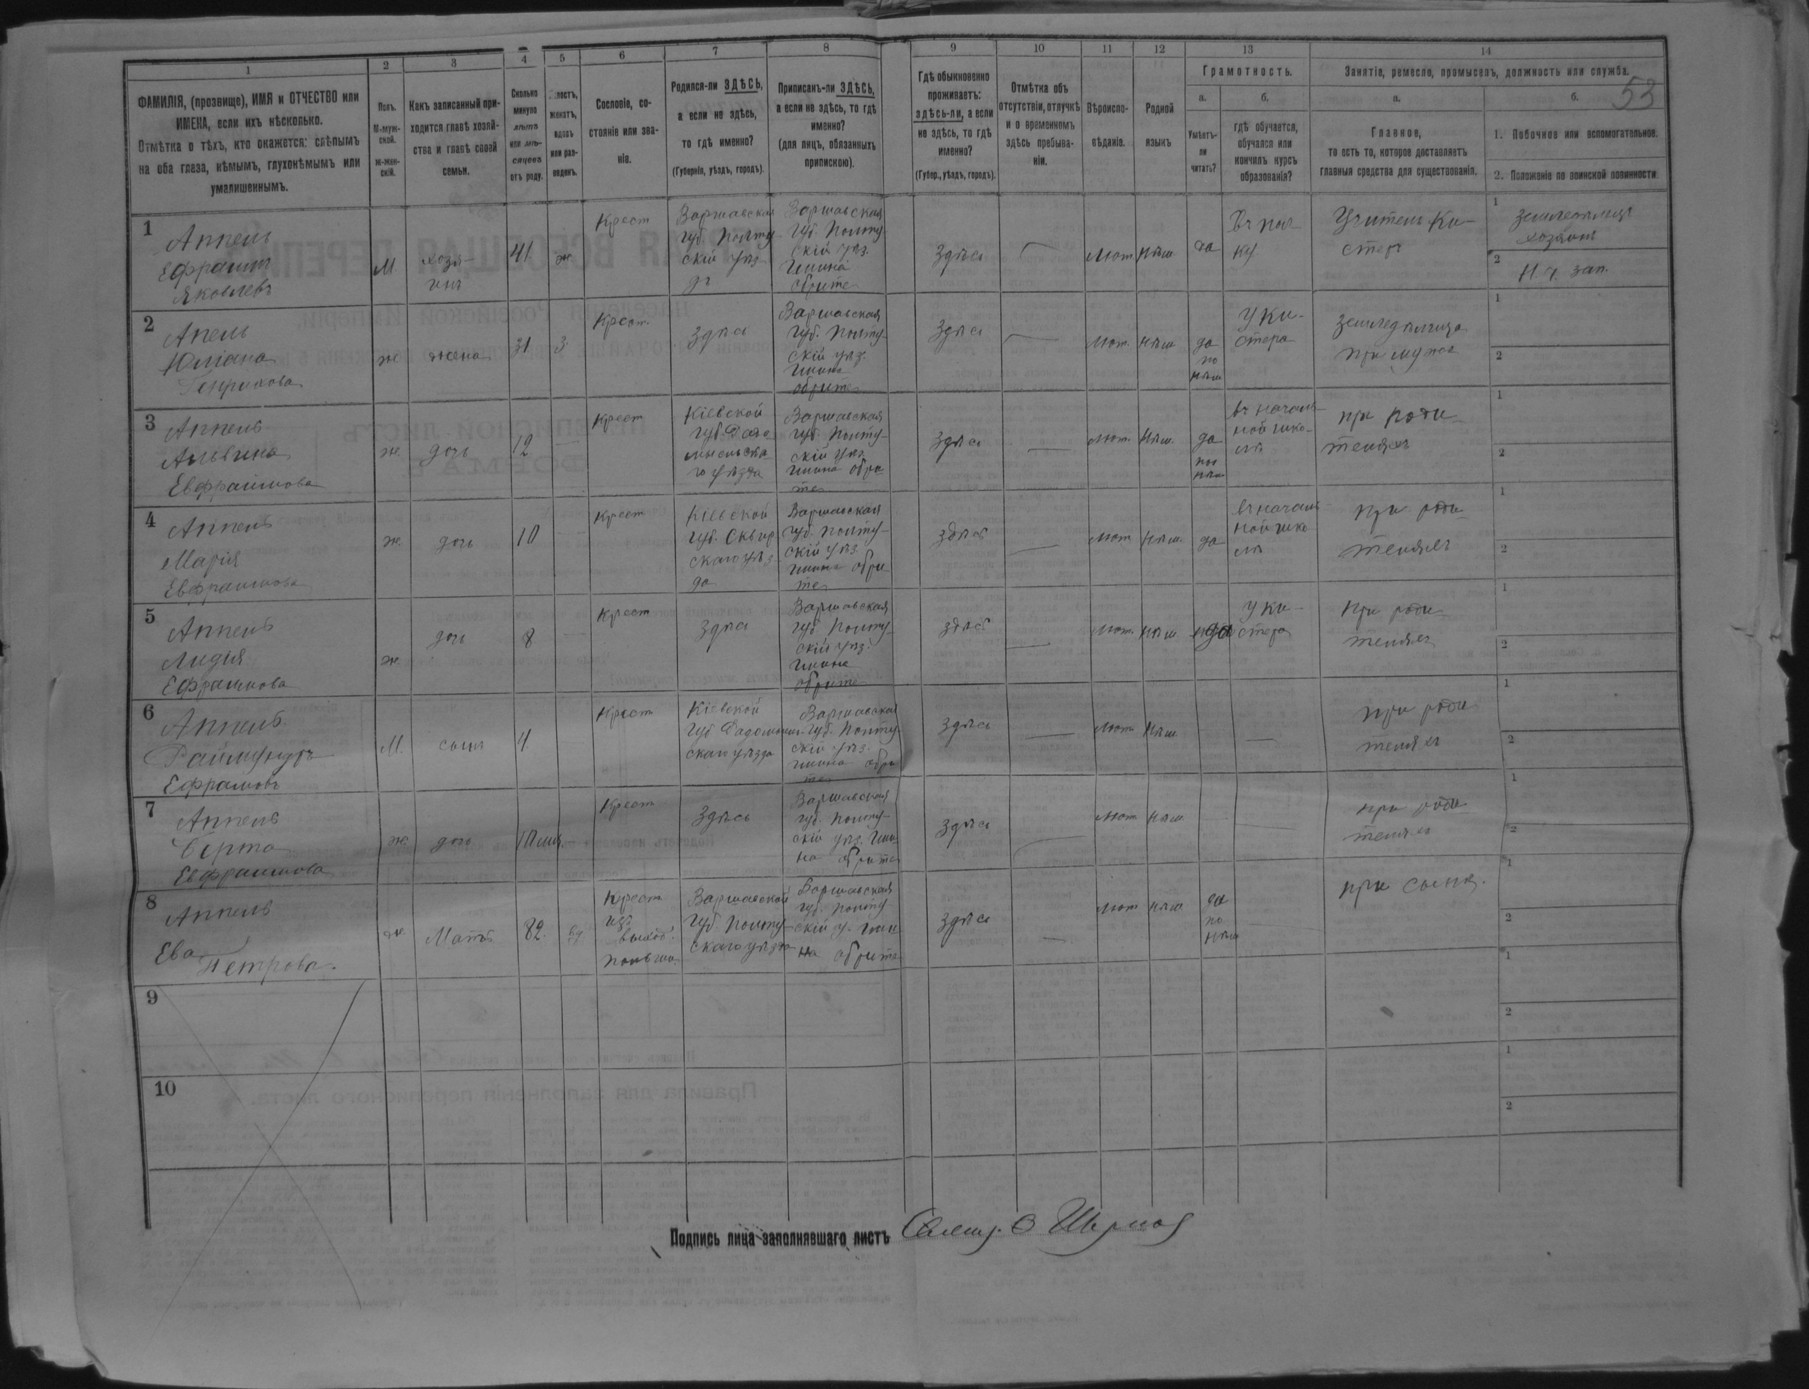 53
1
2
3
4
5
6
7
8
9
10
11
12
13
14
ФАМИЛІЯ, (прозвище), ИМЯ и ОТЧЕСТВО или
ИМЕНА, если ихъ нѣсколько.
Отмѣтка о тѣхъ, кто окажется: слѣпымъ
на оба глаза, нѣмымъ, глухонѣмымъ или
умалишеннымъ.
Полъ.
М-муж-
ской.
ж-жен-
скій.
Какъ записанный при-
ходится главѣ хозяй-
ства и главѣ своей
семьи.
Сколько
минуло
лѣтъ
или мѣ-
сяцевъ
отъ роду.
женатъ,
вдовъ
или раз-
веденъ.
Сословіе, со-
стояніе или зва-
ніе.
Родился-ли ЗДѢСЬ,
а если не здѣсь,
то гдѣ именно?
(Губернія, уѣздъ, городъ).
Приписанъ-ли ЗДѢСЬ,
а если не здѣсь, то гдѣ
именно?
(для лицъ, обязанныхъ
припискою).
Гдѣ обыкновенно
проживаетъ:
здѣсь-ли, а если
не здѣсь, то гдѣ
именно?
(Губер., уѣздъ, городъ).
Отмѣтка объ
отсутствіи, отлучкѣ
и о временномъ
здѣсь пребыва-
ніи.
Вѣроиспо-
вѣданіе.
Родной
языкъ
Грамотность.
а.
Умѣетъ-
ли
читать?
б.
гдѣ обучается,
обучался или
кончилъ курсъ
образованія?
Занятіе, ремесло, промыселъ, должность или служба.
а.
Главное,
то есть то, которое доставляетъ
главныя средства для существованія.
б.
1. Побочное или вспомогательное.
2. Положеніе по воинской повинности.
1
Аппель
Ефраимъ
Яковлевъ
М
хозя-
инъ
41
ж
Крест
Варшавская
губ. Полту
скій уѣз
дъ
Варшавская
губ. Полту
скій уѣз.
Гмина
обрите
Здѣсь
Лют
нѣм.
да
Учитель Ки-
стеръ
1
хозяинъ
2
2
Апель
Юліана
Генрихова
ж
жена
31
З
Крест.
здѣсь
Варшавская
губ. Полту-
скій уѣз.
Гмина
обрите
Здѣсь
Лют.
нѣм
да
по
нѣм
у Ки-
стера
при мужѣ
1
2
3
Аппель
Альвина
Евфраимова
ж
дочь
12
Крест
Кіевской
губ. Радо
мысльска
го уѣзда
Варшавская
губ. Полту-
скій уѣз
Гмина обри
те
здѣсь
лют.
нѣм.
да
по
нѣм
въ началь-
ной шко-
лѣ
при роди
теляхъ
1
2
4
Аппель
Марія
Евфраимова
ж
дочь
10
Крест
Кіевской
губ. Сквир
скаго уѣз
да
Варшавская
губ. Полту-
скій уѣз
Гмина обри
те
здѣсь
лют
нѣм.
да
въ началь-
ной шко
лѣ
при роди
теляхъ
1
2
5
Аппель
Лидія
Ефраимова
ж
дочь
8
Крест
здѣсь
Варшавская
губ. Полту-
скій уѣз.
Гмина
обрите
здѣсь
лют.
нѣм
да
у Ки-
стера
при роди
теляхъ
1
2
6
Аппель
Раймундъ
Ефраимовъ
М
сынъ
4
Крест
Кіевской
губ Радомысль
скаго уѣзда
Варшавская
губ. Полту
скій уѣз.
Гмина обри
те
здѣсь
лют
нѣм
при роди
теляхъ
1
2
7
Аппель
Берта
Евфраимова
ж.
дочь
Крест
Здѣсь
Варшавская
губ. Полту-
скій уѣз. Гми
на обрите
здѣсь
лют
нѣм
при роди
теляхъ
1
2
8
Аппель
Ева
Петрова.
ж.
Мать
82
вд
Крест
изъ
выход.
Польши
Варшавской
губ. Полту-
скаго уѣзда
Варшавская
губ. Полту
скій у. Гми
на обрите
здѣсь
лют
нѣм
да
по
нѣм
при сынѣ.
1
2
9
1
2
10
1
2
Подпись лица заполнявшаго листъ